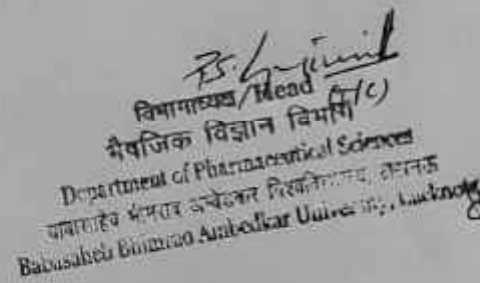 विभागाध्यक्ष/Head (I/C)
भैषजिक विज्ञान विभाग
Department of Pharmaceutical Sciences
बाबासाहेब भीमराव अम्बेडकर विश्वविद्यालय, लखनऊ
Babasaheb Bhimrao Ambedkar University, Lucknow